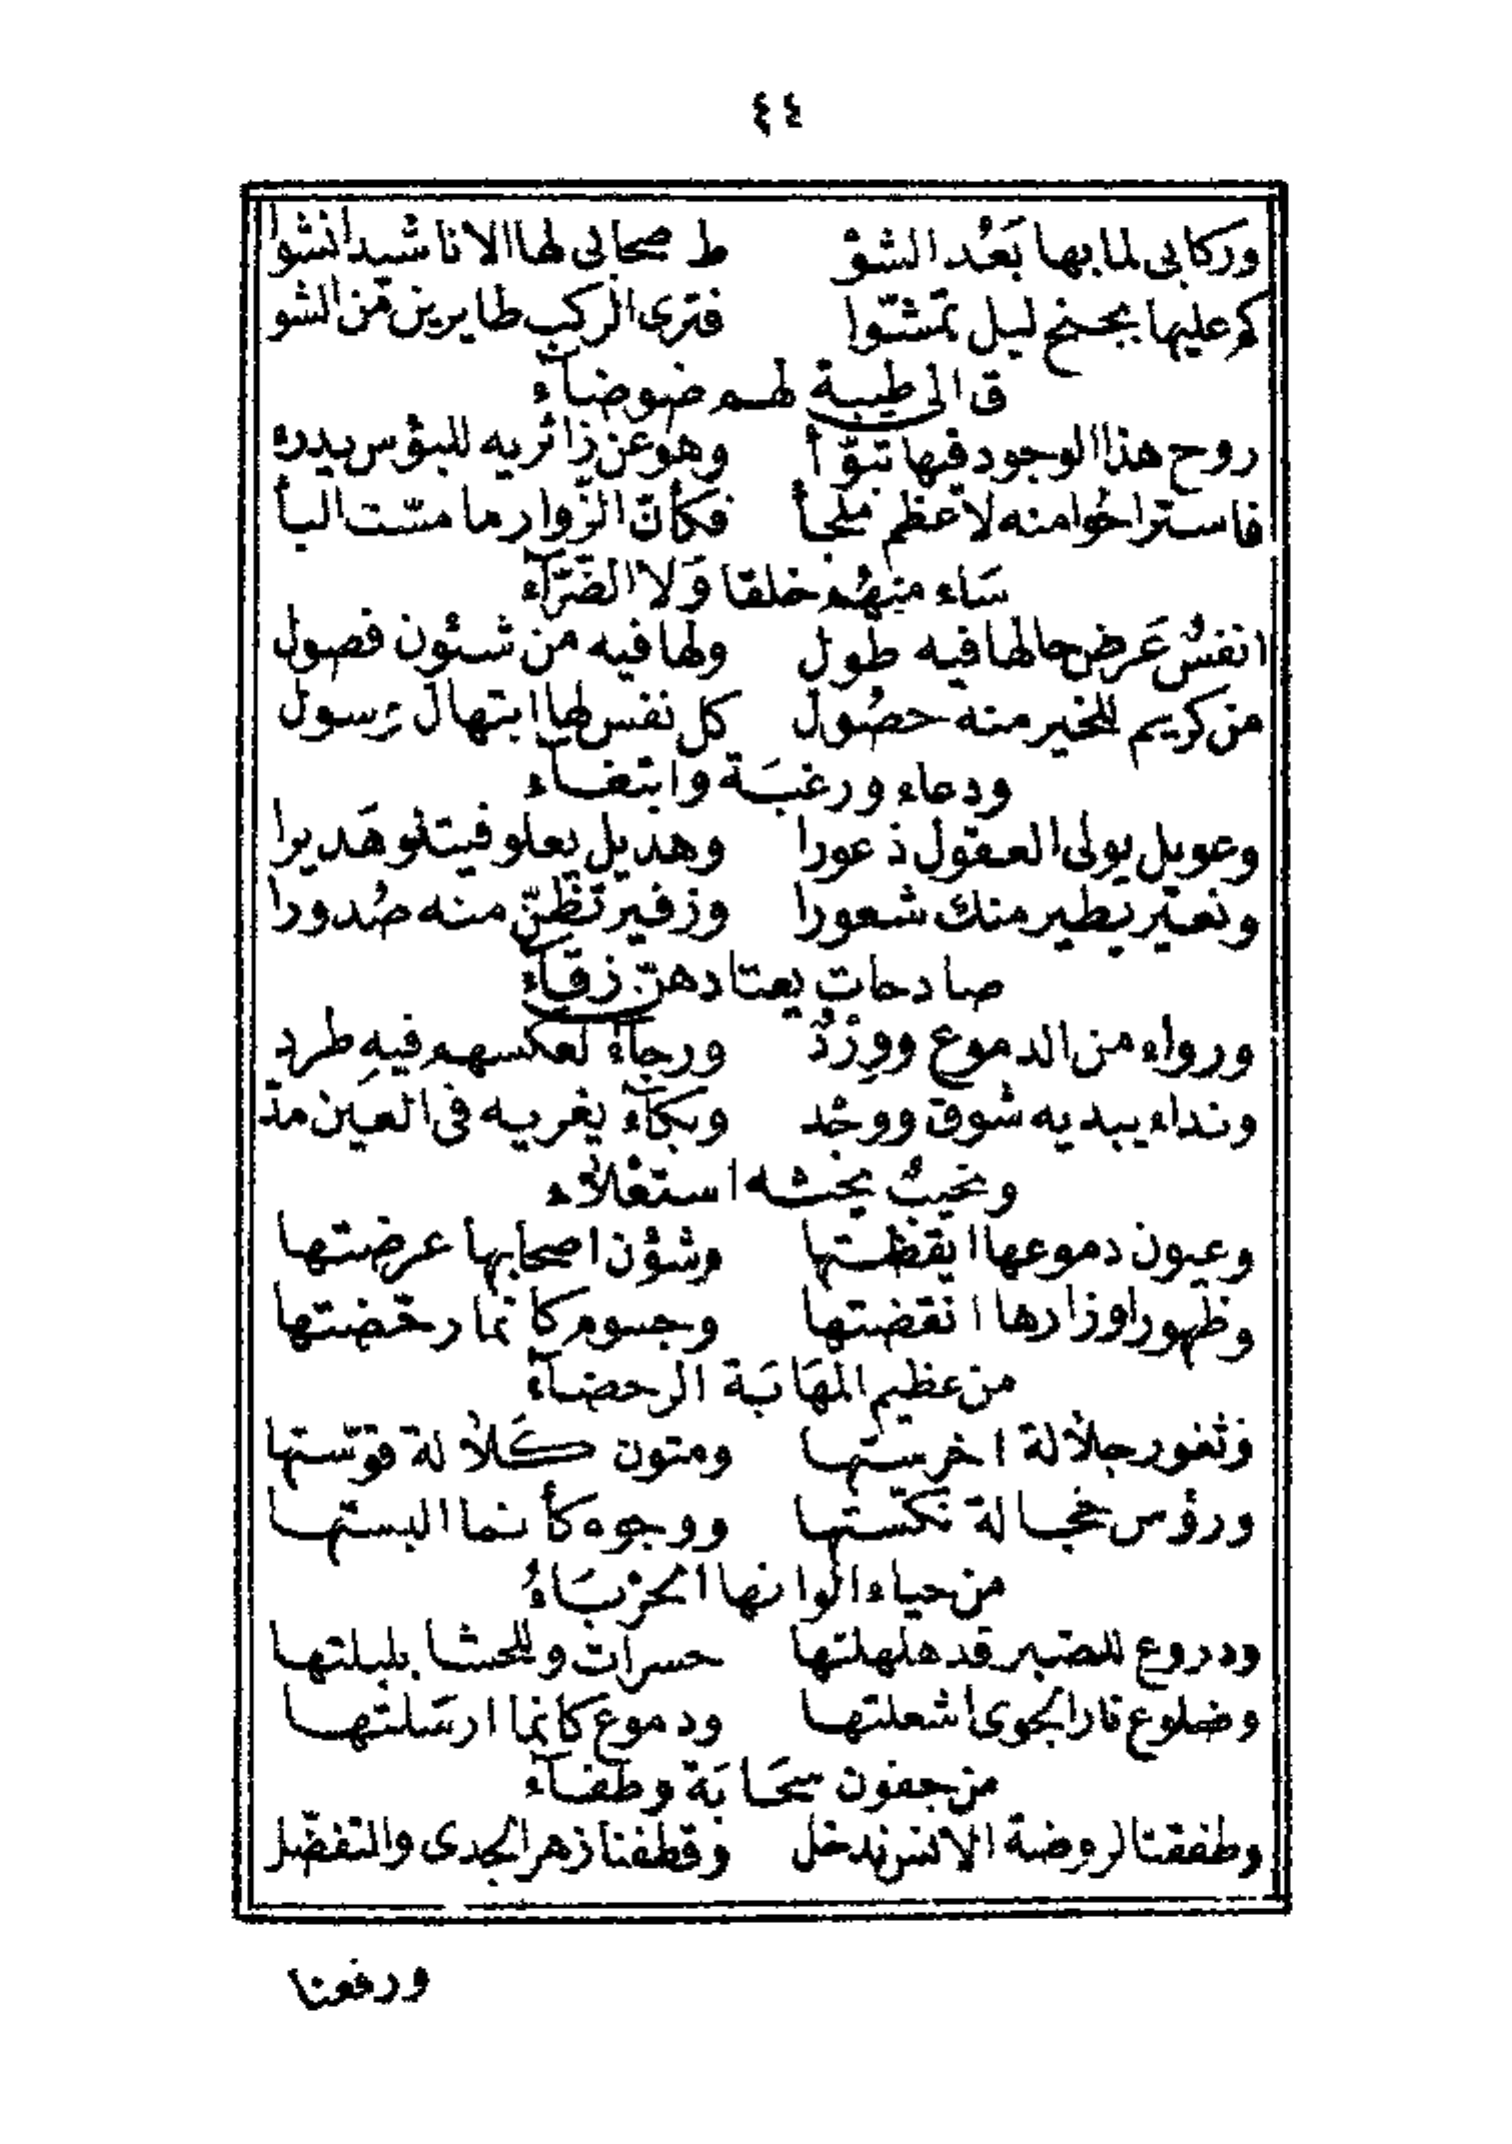 ٤٤
وركابى لما بها بَعُد الشوْ ط صحابى لها الاناشيد انشوا
كم عليها بجنح ليل تمشّوا فترى الركب طايرين من الشو
ق الى طيبة لهم ضوضآء
روح هذا الوجود فيها تبوّأ وهو عن زائريه للبؤس يدرء
فاستراحُوا منه لاعظم ملجأ فكأنّ الزّوار ما مسّت البأ
سَاء منهُم خلقا وَلا الضَرّآء
انفسٌ عَرض حالها فيه طول ولها فيه من شئون فصول
من كريم للخير منه حصُول كل نفس لها ابتهال وسول
ودعاء ورغبَة وابتغآء
وعويل يولى العقول ذعورا وهذيل يعلو فيتلو هَديرا
ونعيّر يطير منك شعورا وزفير تظنّ منه صُدورا
صادحات يعتادهنّ زقآء
ورواء من الدموع ووِرْدٌ ورجآء لعكسهم فيهِ طرد
ونداء يبديه شوق ووجْد وبكآء يغريه فى العين مدّ
ونحيبٌ يحثه استعْلآء
وعيون دموعها ايقظتها وشؤن اصحابها عرضتها
وظهور اوزارها انقضتها وجسوم كانما رحّضتها
من عظيم المَهَابَة الرحضآء
وثغور جلالة اخرستها ومتون كَلالة قوّستها
ورؤس خجالة نكّستها ووجوه كأنما البستها
من حياء الوانها الحِرْبَاءُ
ودروع للصّبر قد هلهلتها حسرات وللحشا بلبلتها
وضلوع نار الجوى اشعلتها ودموع كانما ارسَلتها
من جفون سَحَابَة وطفآء
وطفقنا لروضة الانس ندخل وقطفنا زهر الجدى والتفضّل
ورفعنا